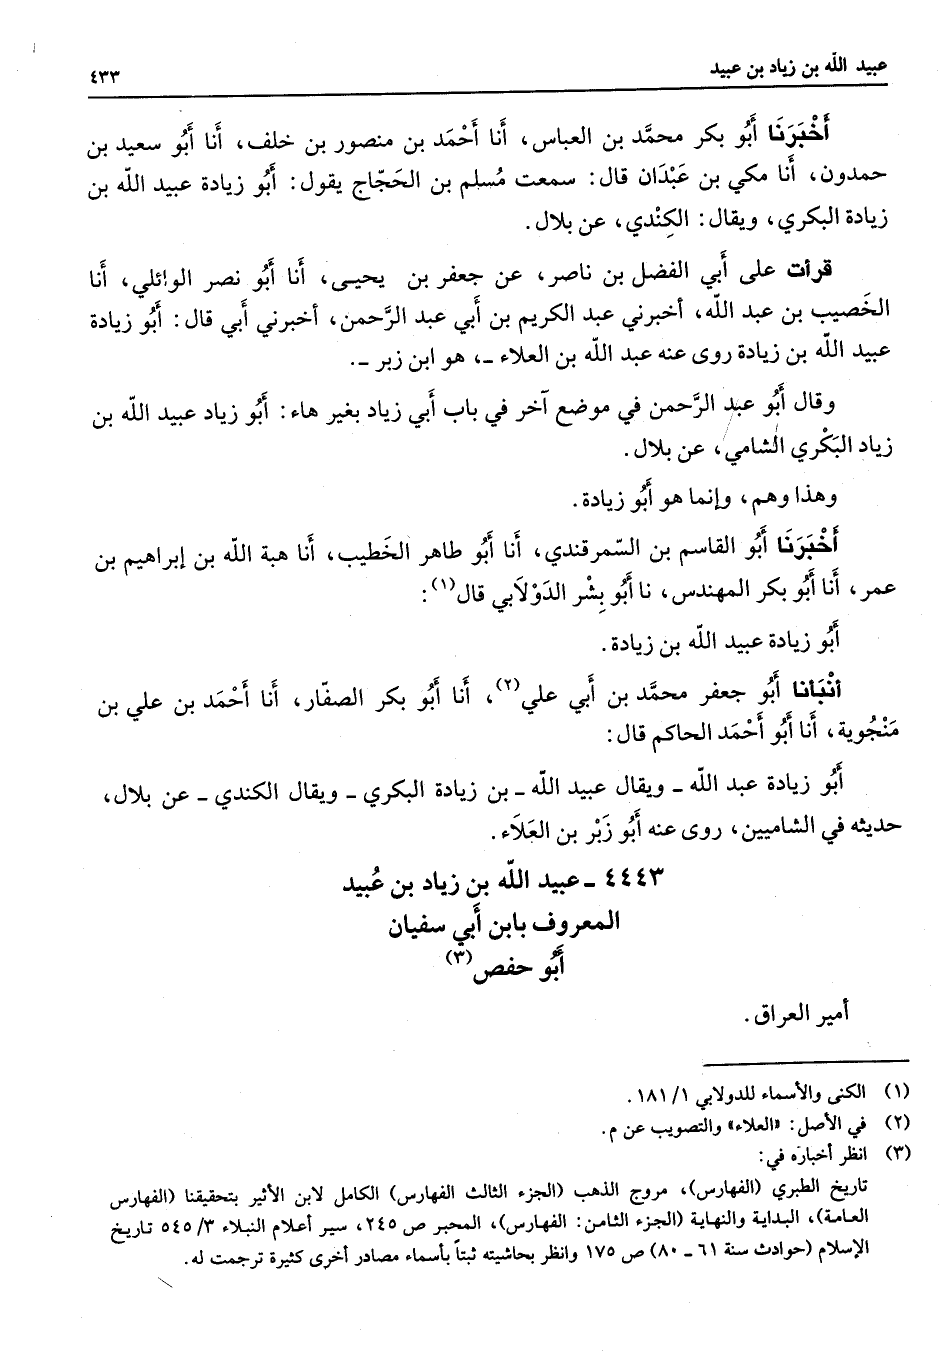 عبيد الله بن زياد بن عبيد
٤٣٣
أَخْبَرَنَا أَبُو بكر محمَّد بن العباس، أنا أَحْمَد بن منصور بن خلف، أَنا أَبُو سعيد بن
حمدون، أَنا مكي بن عَبْدَان قال: سمعت مُسلم بن الحَجّاج يقول: أَبُو زيادة عبيد الله بن
زيادة البكري، ويقال: الكِنْدي، عن بلال.
قرأت على أَبي الفضل بن ناصر، عن جعفر بن يحيى، أَنا أَبُو نصر الوائلي، أَنا
الخَصيب بن عبد الله، أخبرني عبد الكريم بن أَبي عبد الرَّحمن، أخبرني أَبي قال: أَبُو زيادة
عبيد الله بن زيادة روى عنه عبد الله بن العلاء ـ، هو ابن زبر ـ.
وقال أَبُو عبد الرَّحمن في موضع آخر في باب أَبي زياد بغير هاء: أَبُو زياد عبيد الله بن
زياد البَكْري الشامي، عن بلال.
وهذا وهم، وإنما هو أَبُو زيادة.
أَخْبَرَنَا أَبُو القاسم بن السّمرقندي، أَنا أَبُو طاهر الخَطيب، أَنا هبة الله بن إبراهيم بن
عمر، أَنا أَبُو بكر المهندس، نا أَبُو بِشْر الدَوْلاَبي قال(١):
أَبُو زيادة عبيد الله بن زيادة.
أنْبَأنا أَبُو جعفر محمَّد بن أَبي علي(٢)، أَنا أَبُو بكر الصفّار، أَنا أَحْمَد بن علي بن
مَنْجُوية، أَنا أَبُو أَحْمَد الحاكم قال:
أَبُو زيادة عبد الله ـ ويقال عبيد الله ـ بن زيادة البكري ـ ويقال الكندي ـ عن بلال،
حديثه في الشاميين، روى عنه أَبُو زَبْر بن العَلاَء.
٤٤٤٣ ـ عبيد الله بن زياد بن عُبيد
المعروف بابن أَبي سفيان
أَبُو حفص(٣)
أمير العراق.
(١) الكنى والأسماء للدولابي ١/ ١٨١.
(٢) في الأصل: «العلاء» والتصويب عن م.
(٣) انظر أخباره في:
تاريخ الطبري (الفهارس)، مروج الذهب (الجزء الثالث الفهارس) الكامل لابن الأثير بتحقيقنا (الفهارس
العامة)، البداية والنهاية (الجزء الثامن: الفهارس)، المحبر ص ٢٤٥، سير أعلام النبلاء ٣/ ٥٤٥ تاريخ
الإسلام (حوادث سنة ٦١ ـ ٨٠) ص ١٧٥ وانظر بحاشيته ثبتاً بأسماء مصادر أخرى كثيرة ترجمت له.